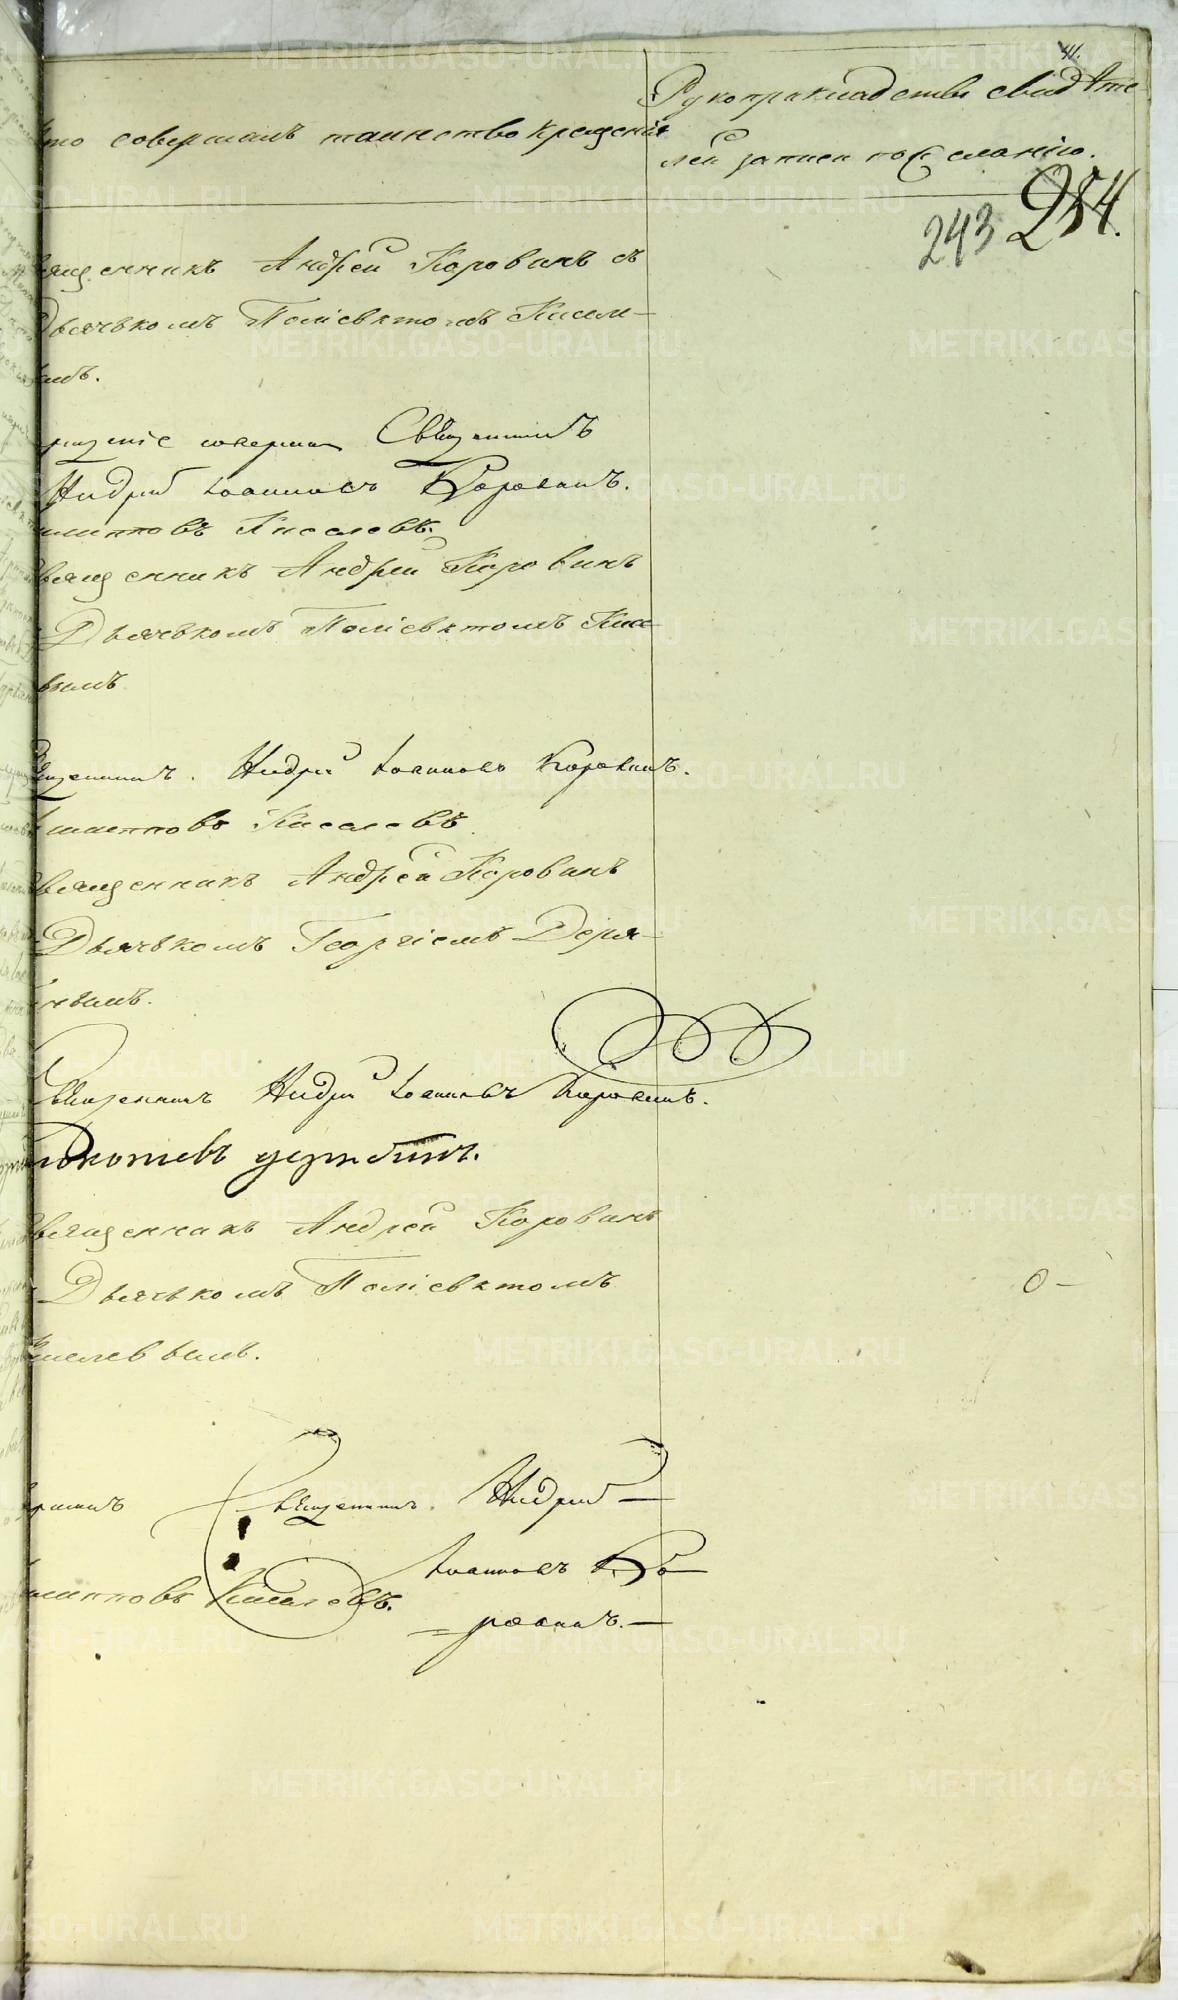 41.
то совершалъ таинство крещенія
Рукоприкладства свидѣте
лей записи по желанію.
243 254.
вященникъ Андрей Коровинъ съ
Дьячькомъ Поліевктомъ Кисиле-
ымъ.
рещеніе совершалъ Священникъ
Андрей Іоанновъ Коровинъ.
липповъ Киселевъ.
вященникъ Андрей Коровинъ
Дьячькомъ Поліевктомъ Кисе-
вымъ
Священникъ. Андрей Іоанновъ Коровинъ.
липповъ Киселевъ
вященникъ Андрей Коровинъ
Дьячькомъ Георгіемъ Деря-
ымъ.
Священникъ Андрей Іоанновъ Коровинъ.
вященникъ Андрей Коровинъ
Дьячькомъ Поліевктомъ
иселевымъ.
ершилъ Священникъ. Андрей
Іоанновъ Ко
липповъ Киселевъ.
ровинъ.
METRIKI.GASO-URAL.RU